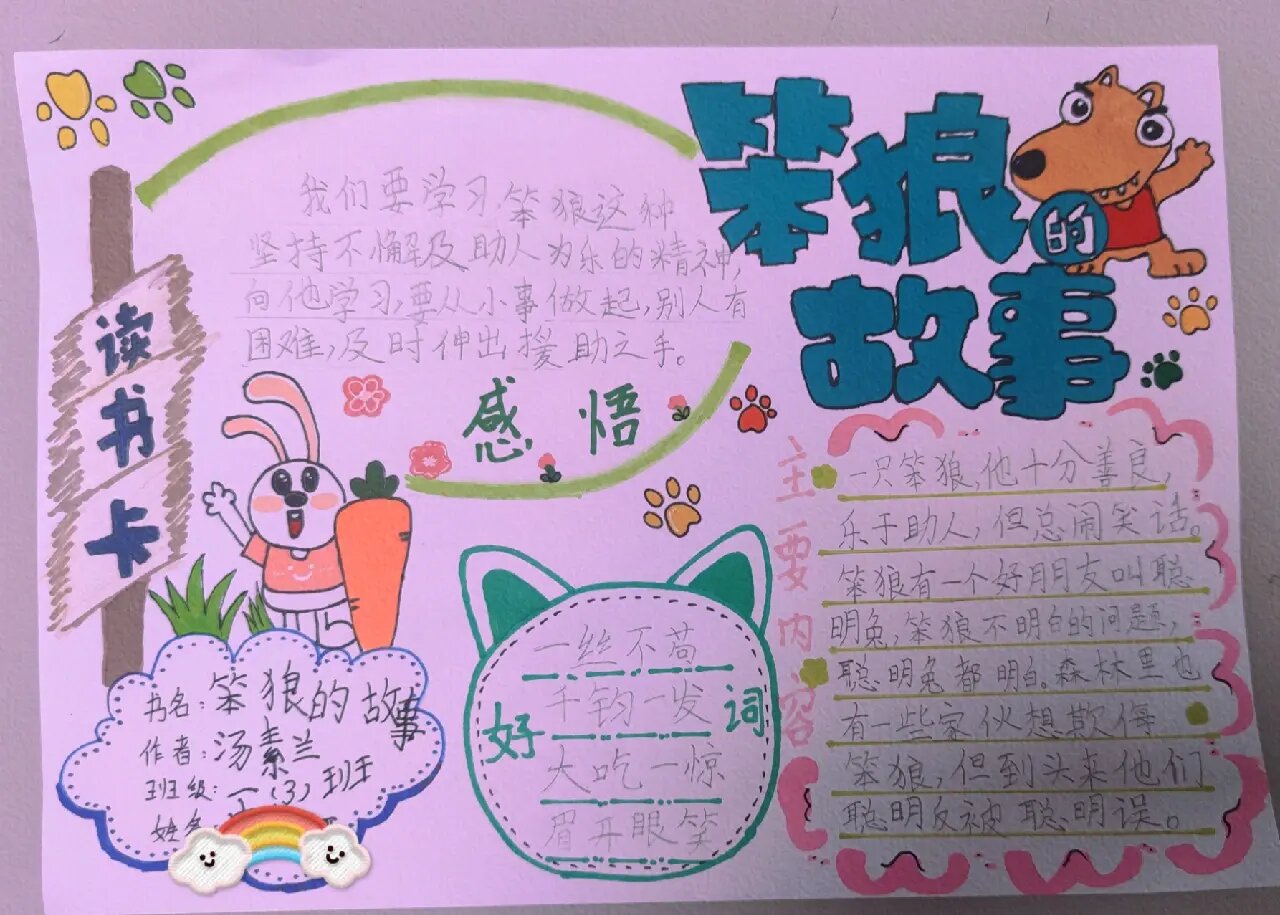 笨狼的
故事
读书卡
我们要学习笨狼这种
坚持不懈及助人为乐的精神,
向他学习,要从小事做起,别人有
困难,及时伸出援助之手。
感悟
书名:笨狼的故事
作者:汤素兰
班级:(3)班
姓名
好词
一丝不苟
千钧一发
大吃一惊
眉开眼笑
主要内容
一只笨狼,他十分善良,
乐于助人,但总闹笑话。
笨狼有一个好朋友叫聪
明兔,笨狼不明白的问题,
聪明兔都明白。森林里也
有一些家伙想欺侮
笨狼,但到头来他们
聪明反被聪明误。